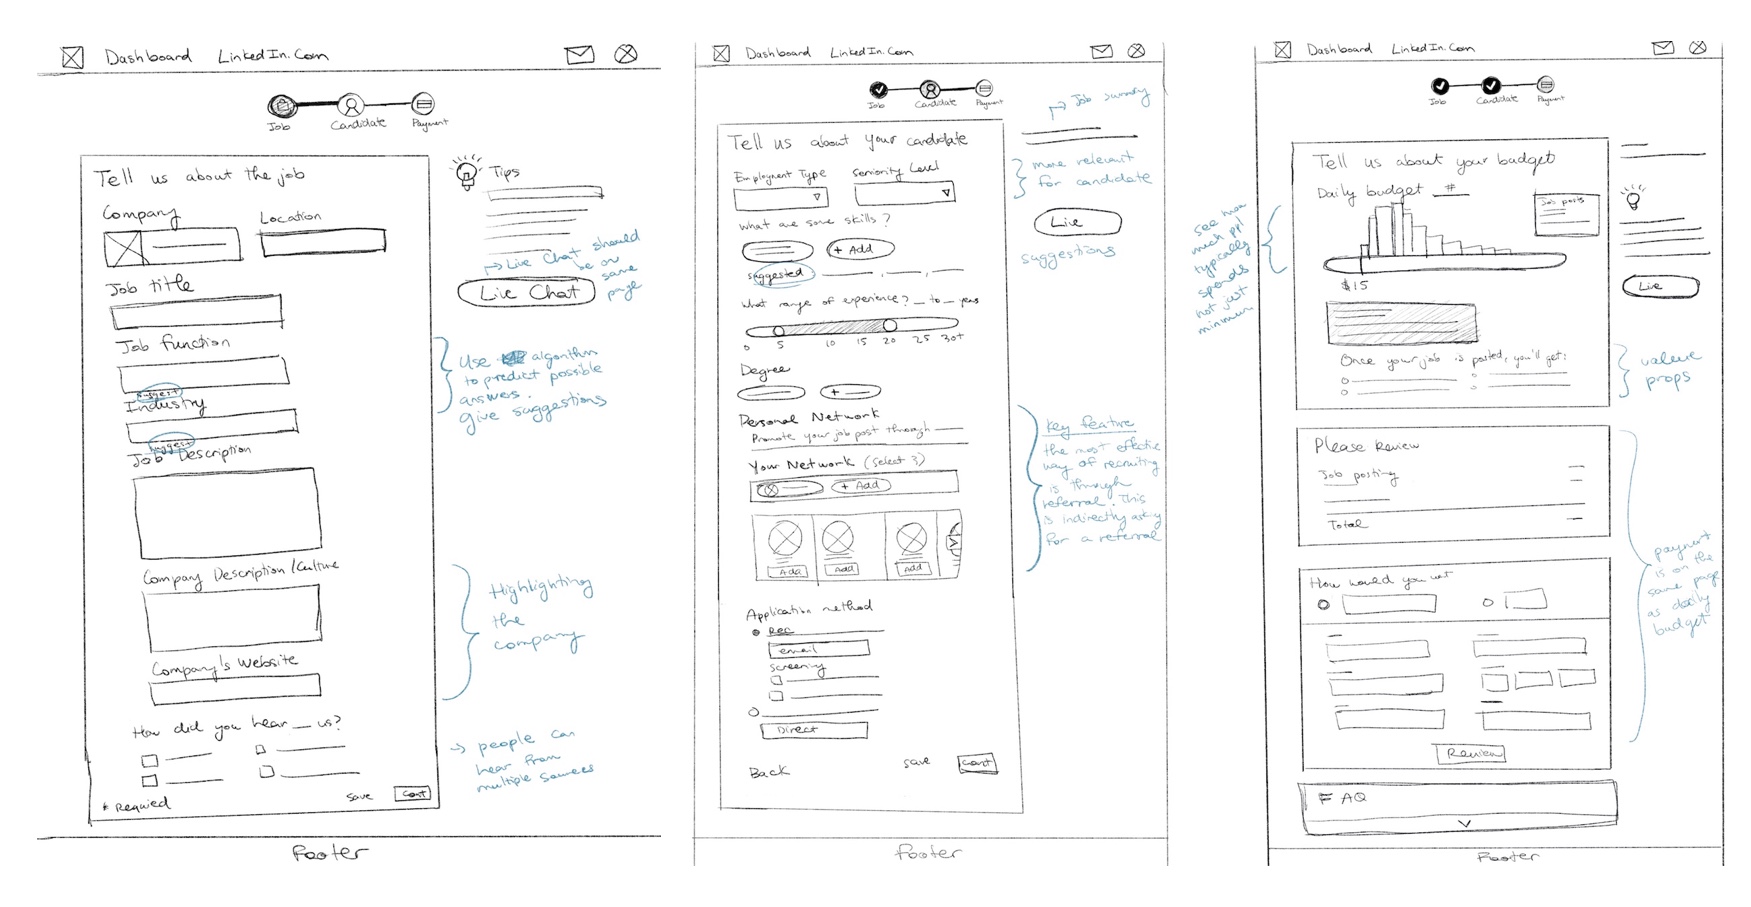 Dashboard LinkedIn.Com
Job
Candidate
Payment
Tell us about the job
Company
Location
Job title
Job Function
suggest
Industry
suggest
Job Description
Company Description/Culture
Company's Website
How did you hear __ us?
* Required
save
Cont
Tips
→ Live Chat should
be on
same
page
Live Chat
Use algorithm
to predict possible
answers.
Give suggestions
Highlighting
the
company
→ people can
hear from
multiple sources
Footer
Dashboard LinkedIn.Com
Job
Candidate
Payment
Tell us about your candidate
Employment Type
Seniority Level
What are some skills?
+ Add
suggested
What range of experience? __ to __ years
0 5 10 15 20 25 30+
Degree
+
Personal Network
Promote your job post through
Your Network (select 3)
+ Add
Add
Add
Add
Application method
Rec
email
Screening
Direct
Back
save
Cont
→ Job summary
more relevant
for candidate
Live
suggestions
Key feature
the most effective
way of recruiting
is through
referral. This
is indirectly asking
for a referral
Footer
Dashboard LinkedIn.Com
Job
Candidate
Payment
Tell us about your budget
Daily budget #
Job posts
$15
Once your job is posted, you'll get:
see how
much ppl
typically
spends
not just
minimum
Live
value
props
Please Review
Job posting
Total
How would you
payment
is on the
same page
as daily
budget
Review
FAQ
Footer